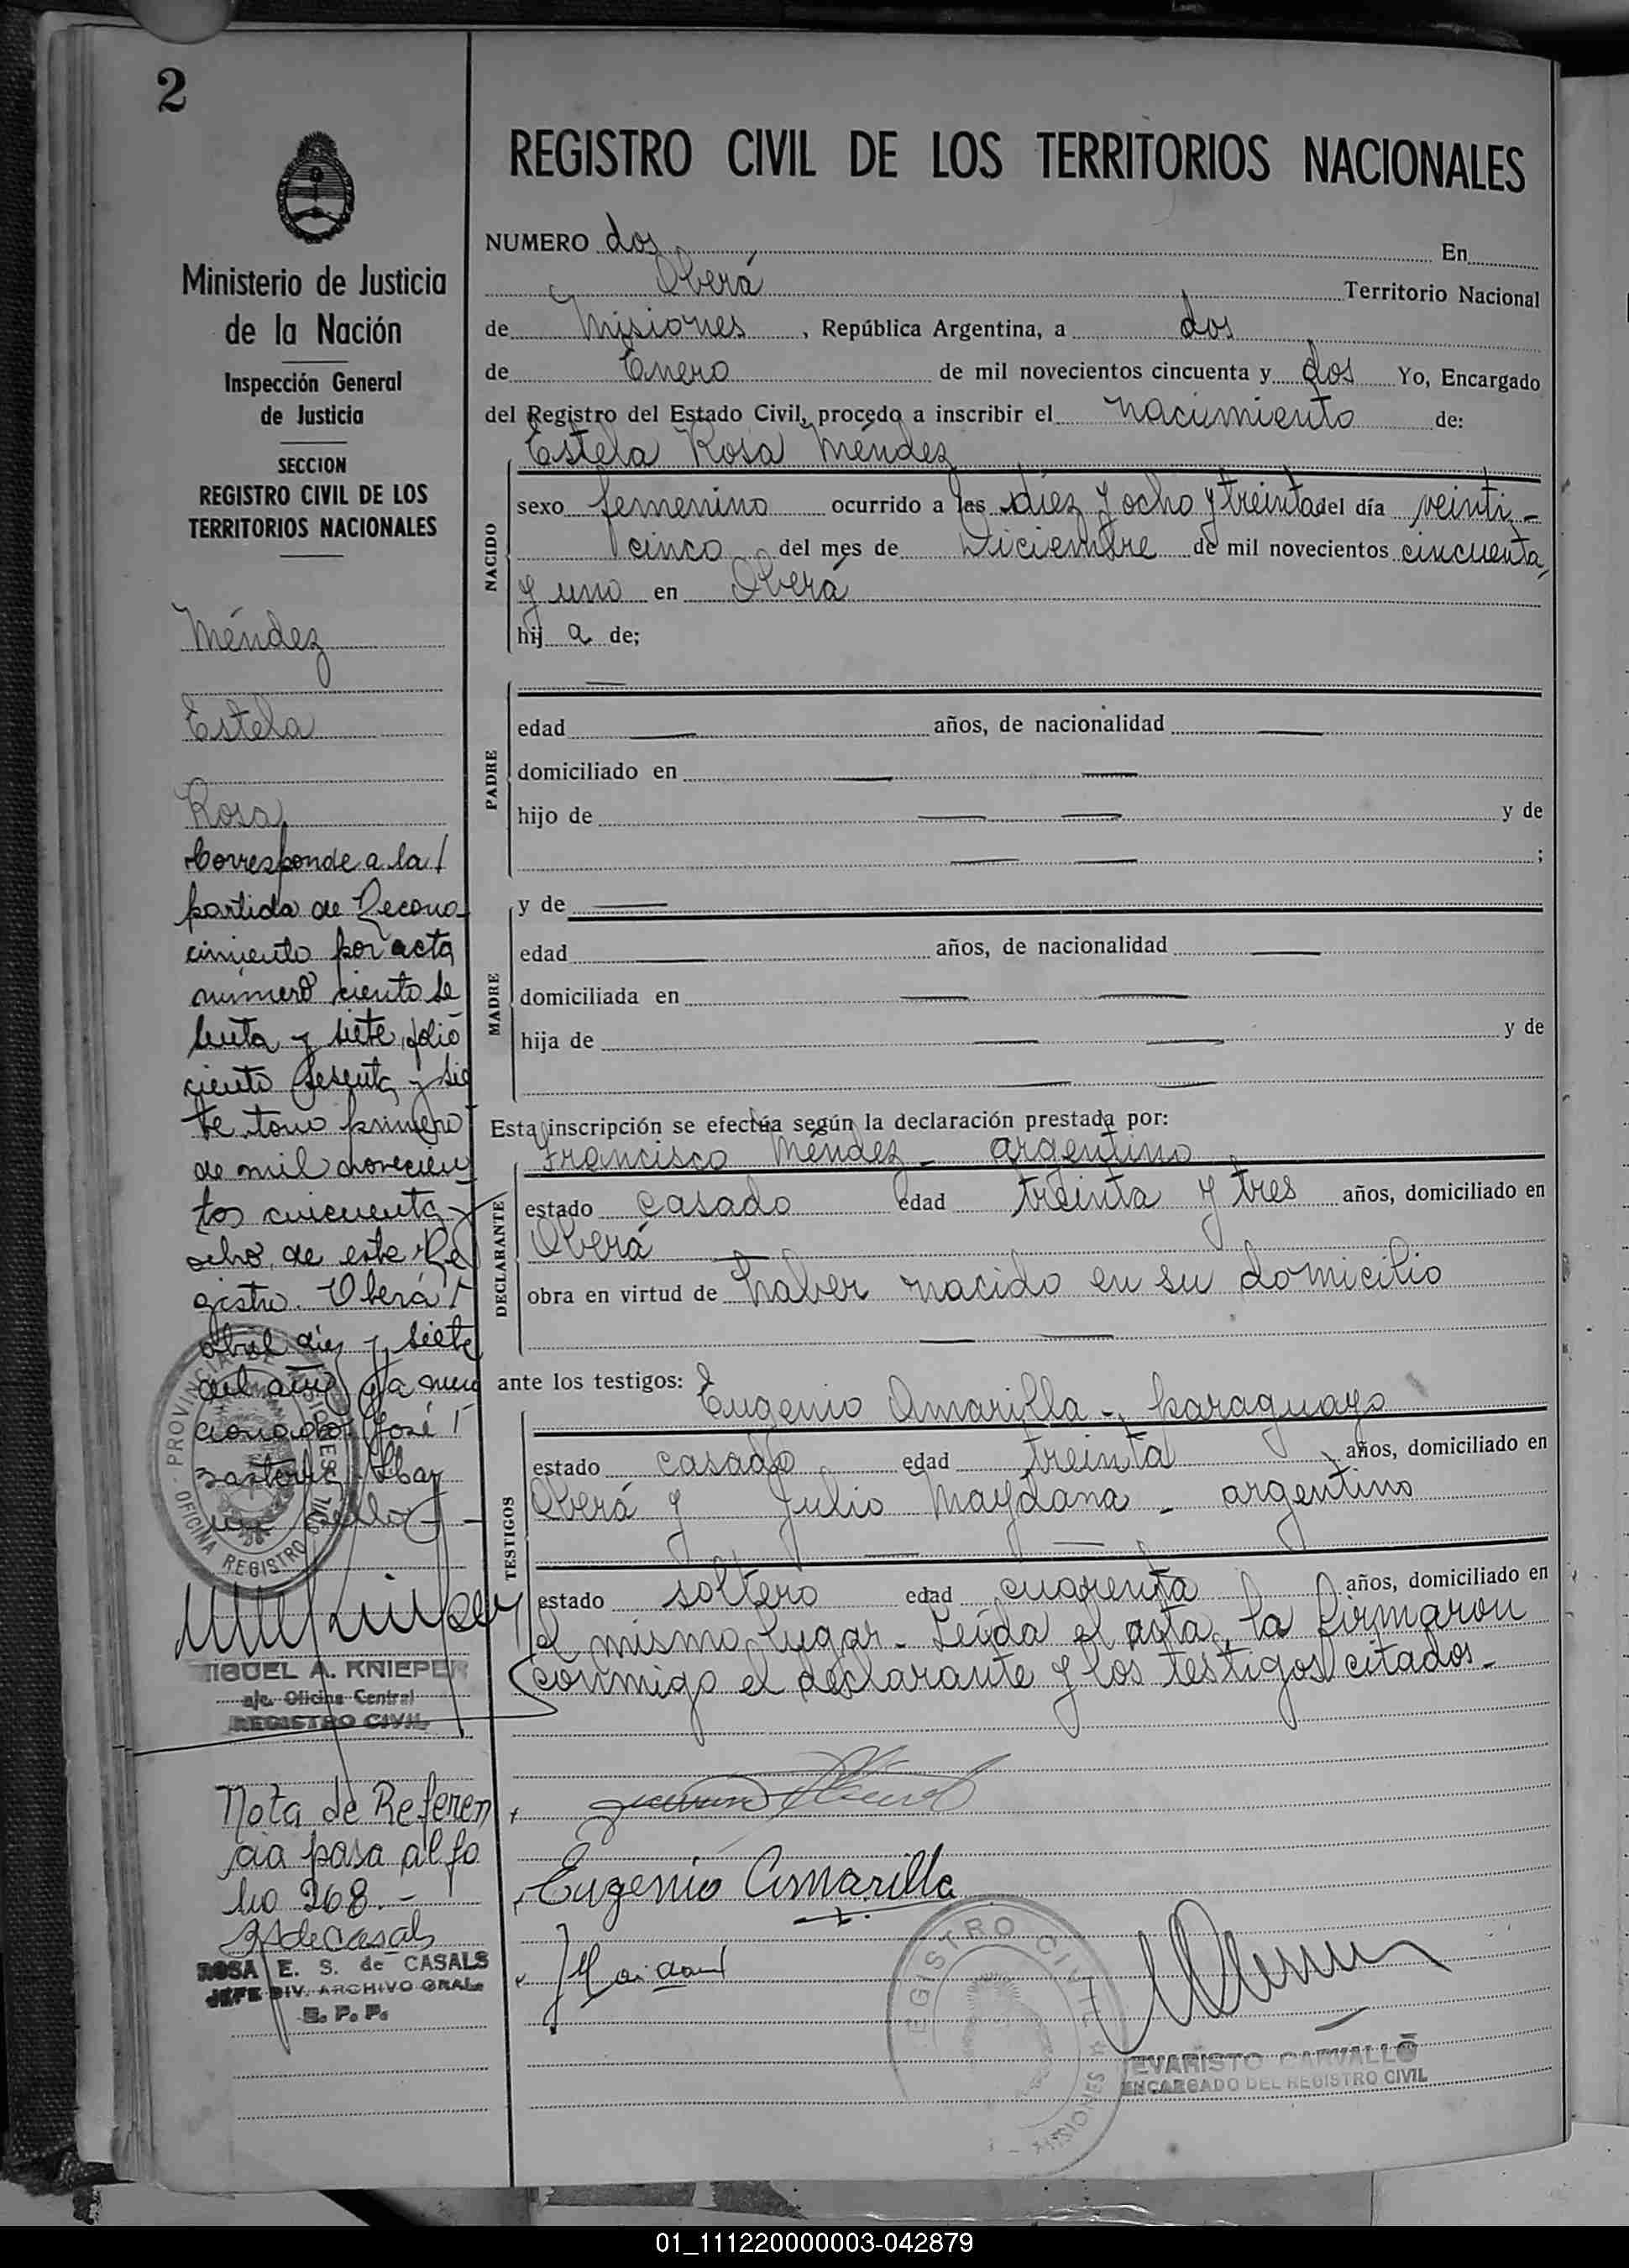 2
Ministerio de Justicia
de la Nación
Inspección General
de Justicia
SECCION
REGISTRO CIVIL DE LOS
TERRITORIOS NACIONALES
Méndez
Estela
Rosa
Corresponde a la
partida de Recono
cimiento por acta
número ciento se
senta y siete, folio
ciento sesenta y sie
te tomo primero
de mil novecien
tos cincuenta y
ocho, de este Re
gistro. Oberá
abril diez y siete
del año ya men
cionado. José
PROVINCIA DE MISIONES
OFICINA REGISTRO CIVIL
MIGUEL A. KNIEPER
a/c. Oficina Central
REGISTRO CIVIL
Nota de Referen
cia pasa al fo
lio 268.-
ROSA E. S. de CASALS
JEFE DIV. ARCHIVO GRAL.
R. P. P.
REGISTRO CIVIL DE LOS TERRITORIOS NACIONALES
NUMERO dos En
Oberá Territorio Nacional
de Misiones, República Argentina, a dos
de Enero de mil novecientos cincuenta y dos Yo, Encargado
del Registro del Estado Civil, procedo a inscribir el nacimiento de:
Estela Rosa Méndez
NACIDO
sexo femenino ocurrido a las diez y ocho y treinta del día veinti-
cinco del mes de Diciembre de mil novecientos cincuenta
y uno en Oberá
hij a de;
PADRE
edad años, de nacionalidad
domiciliado en
hijo de y de
;
MADRE
y de
edad años, de nacionalidad
domiciliada en
hija de y de
Esta inscripción se efectúa según la declaración prestada por:
DECLARANTE
Francisco Méndez - argentino
estado casado edad treinta y tres años, domiciliado en
Oberá
obra en virtud de haber nacido en su domicilio
ante los testigos:
TESTIGOS
Eugenio Amarilla -, paraguayo
estado casado edad treinta años, domiciliado en
Oberá y Julio Maydana - argentino
estado soltero edad cuarenta años, domiciliado en
el mismo lugar. Leída el acta, la firmaron
conmigo el declarante y los testigos citados.-
Eugenio Amarilla
REGISTRO CIVIL
MISIONES
EVARISTO CARVALLO
ENCARGADO DEL REGISTRO CIVIL
01_111220000003-042879